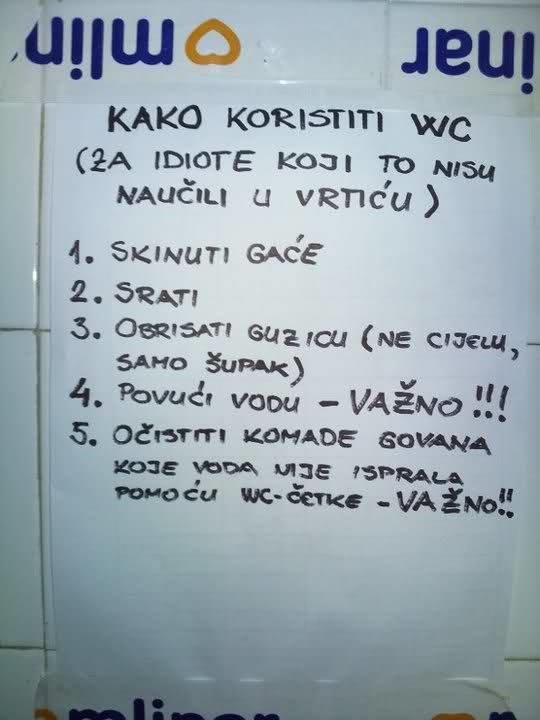 mlin
inar
KAKO KORISTITI WC
(ZA IDIOTE KOJI TO NISU
NAUČILI U VRTIĆU)
1. SKINUTI GAĆE
2. SRATI
3. OBRISATI GUZICU (NE CIJELU,
SAMO ŠUPAK)
4. POVUĆI VODU - VAŽNO!!!
5. OČISTITI KOMADE GOVANA
KOJE VODA NIJE ISPRALA
POMOĆU WC-ČETKE - VAŽNO!!
mlinar